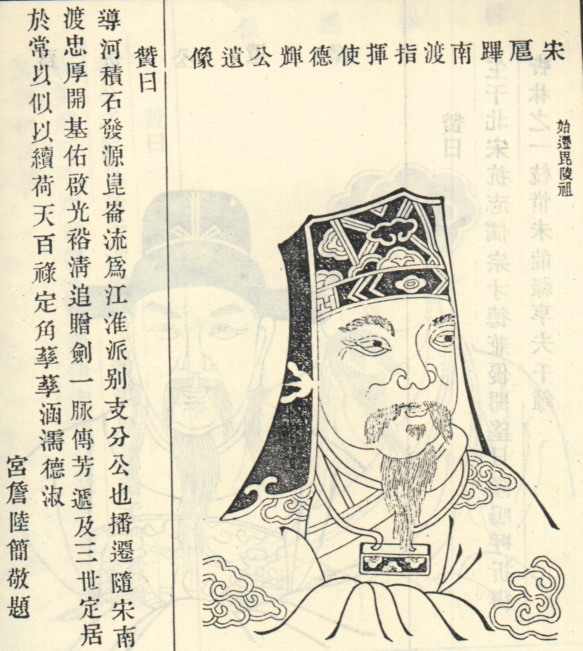 宋扈蹕南渡指揮使德輝公遺像
始遷毘陵祖
贊曰
導河積石發源崑崙流爲江淮派别支分公也播遷隨宋南
渡忠厚開基佑啟光裕淸追贈劍一脉傳芳遞及三世定居
於常以似以續荷天百祿定角孳孳涵濡德淑
宮詹陸簡敬題